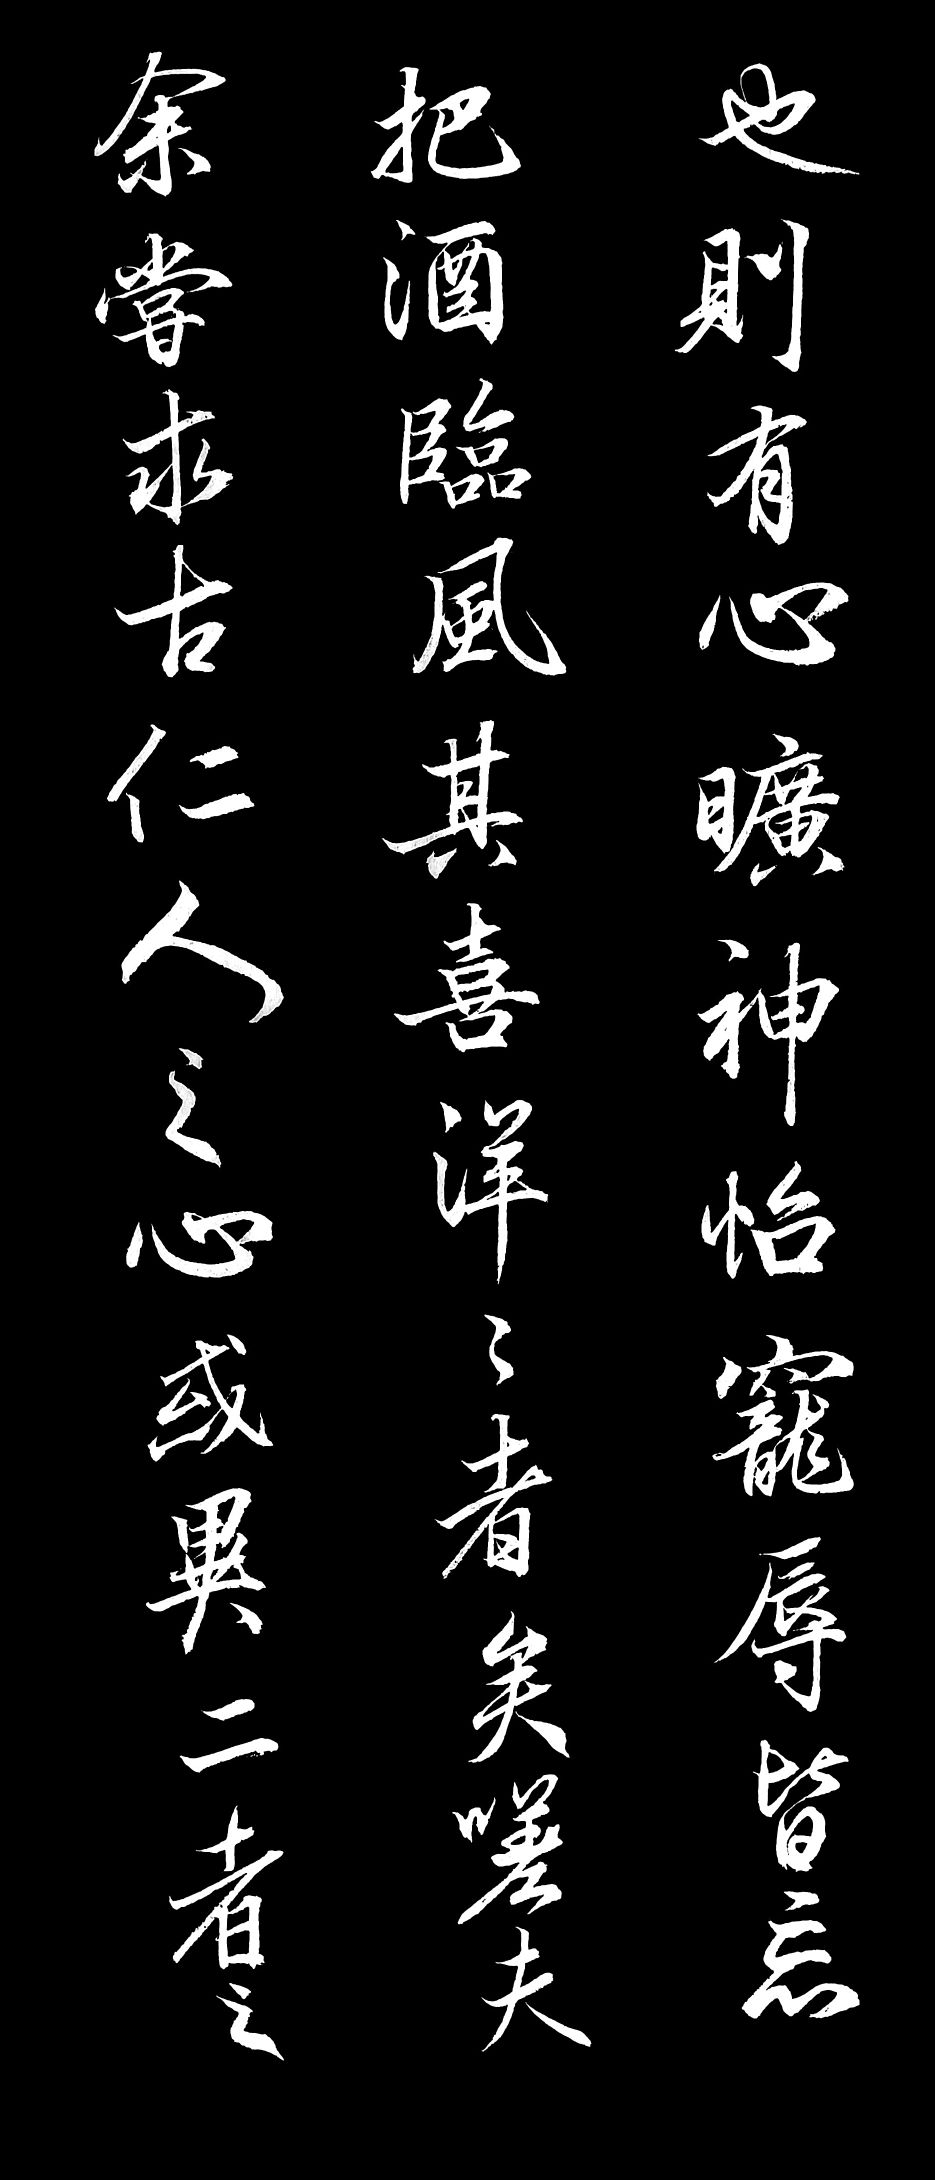 也則有心曠神怡寵辱皆忘
把酒臨風其喜洋〻者矣嗟夫
余嘗求古仁人之心或異二者之